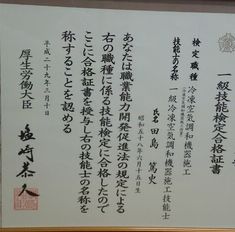 一級技能検定合格証書
検定職種 冷凍空気調和機器施工
技能士の名称 一級冷凍空気調和機器施工技能士
氏名 田島 篤史
昭和五十八年六月十五日生
あなたは職業能力開発促進法の規定による
右の職種に係る技能検定に合格したので
ここに合格証書を与し右の技能士の名称を
称することを認める
平成二十九年三月十日
厚生労働大臣
塩崎恭久